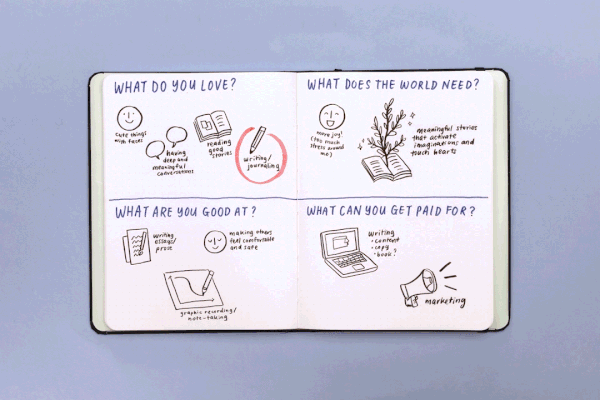 WHAT DO YOU LOVE?
cute things
with faces
having
deep and
meaningful
conversations
reading
good
stories
writing/
journaling
WHAT DOES THE WORLD NEED?
more joy!
(too much
stress around
me)
meaningful stories
that activate
imaginations and
touch hearts
WHAT ARE YOU GOOD AT?
writing
essays/
prose
making others
feel comfortable
and safe
graphic recording/
note-taking
WHAT CAN YOU GET PAID FOR?
writing
• content
• copy
• book?
marketing